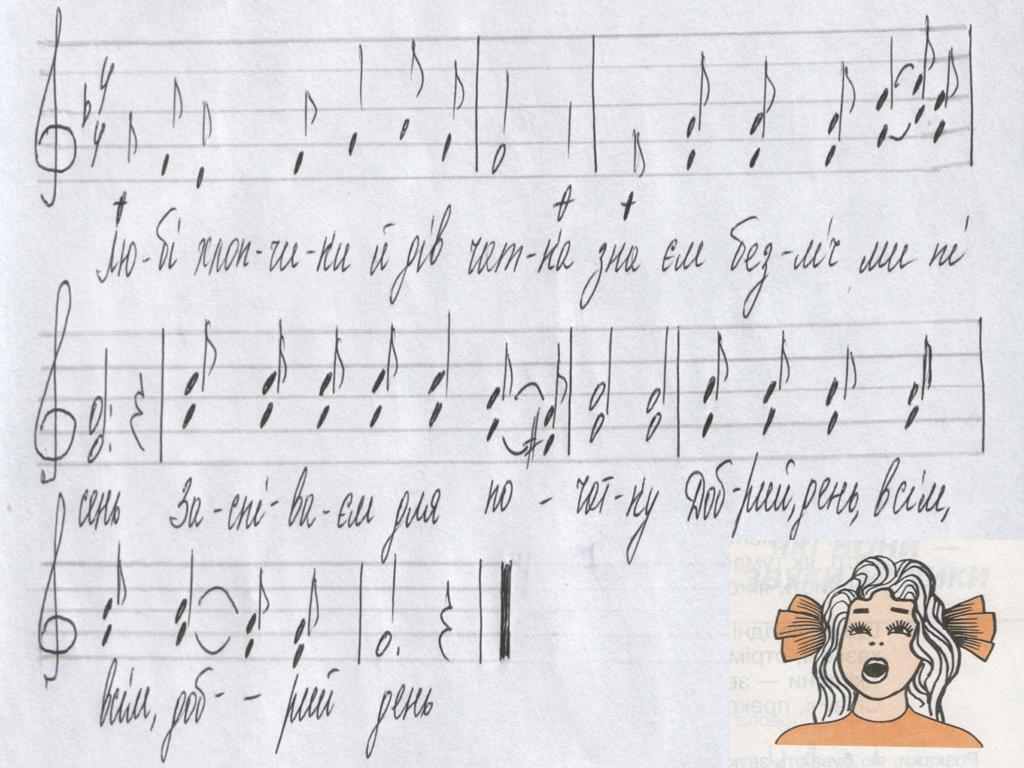 Лю-бі хлоп-чи-ки й дів чат-ка зна єм без-ліч ми пі
сень За-спі-ва-єм для по - чат-ку Доб-рий, день, всім,
всім, доб- - рий день